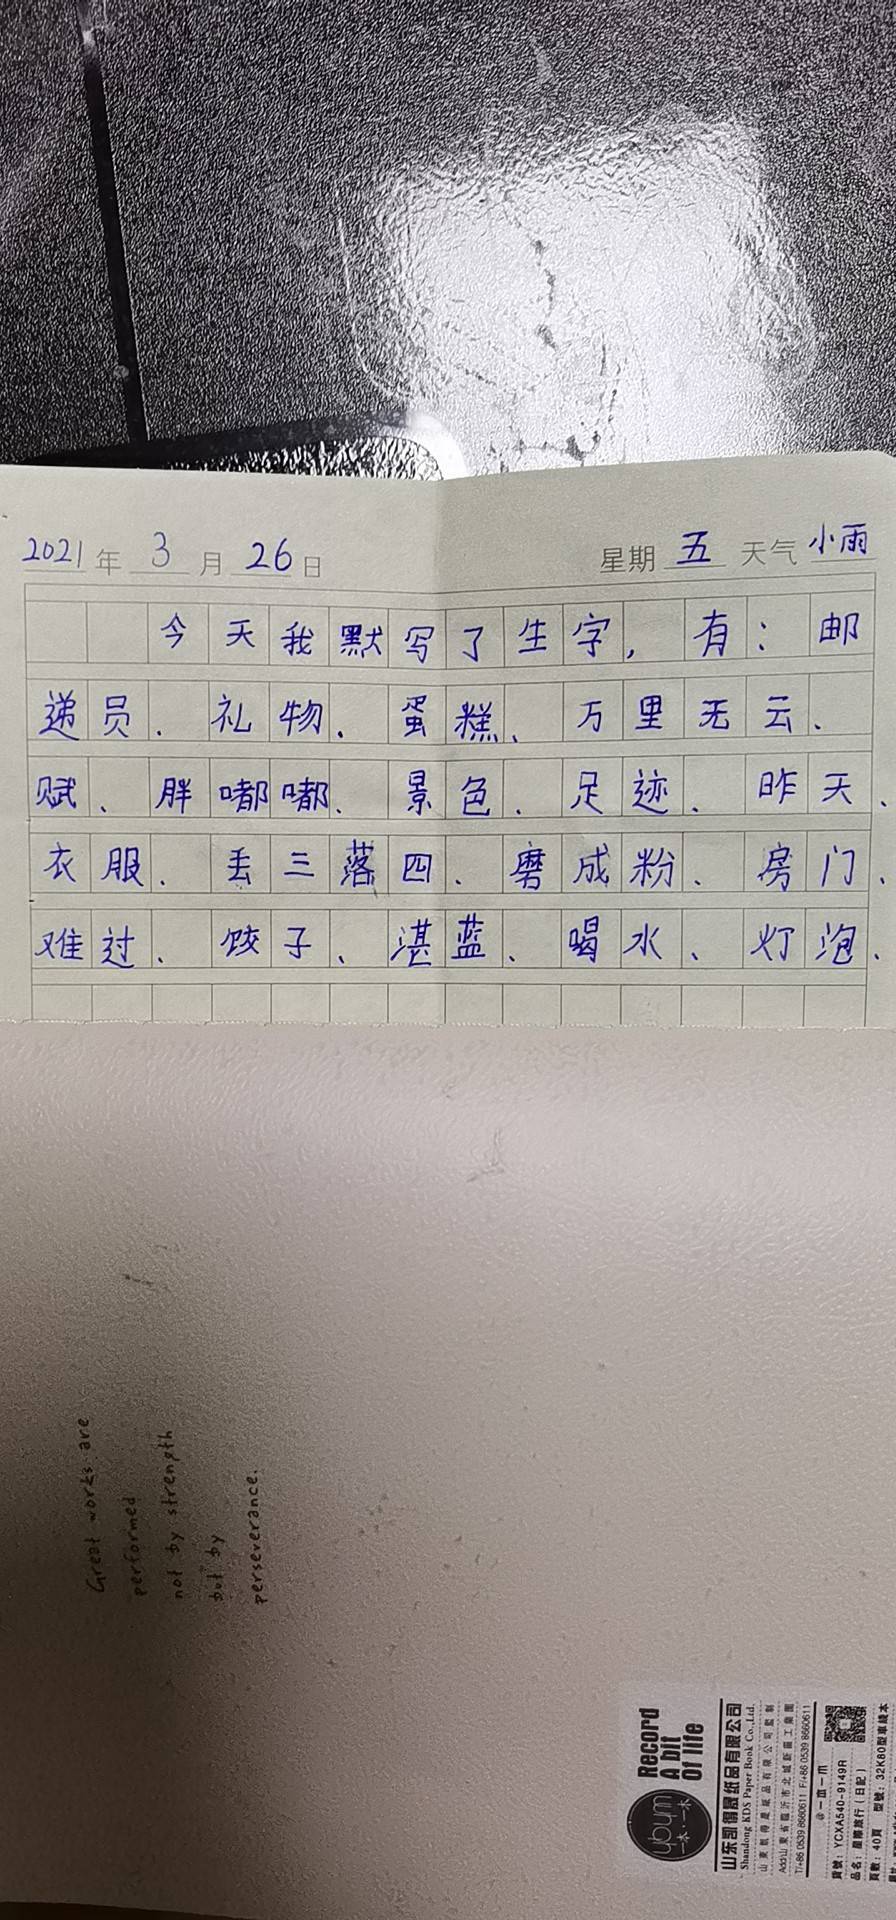 2021年 3 月 26 日 星期 五 天气 小雨
今天我默写了生字，有：邮
递员、礼物、蛋糕、万里无云、
赋、胖嘟嘟、景色、足迹、昨天、
衣服、丢三落四、磨成粉、房门、
难过、饺子、湛蓝、喝水、灯泡、
Great works are
performed
not by strength
but by
perseverance.
Record
A bit
Of life
ybym
一本·一木
山东凯得晟纸品有限公司
Shandong KDS Paper Book Co.,Ltd.
T/+86 0539 8660611 F/+86 0539 8660611
貨號：YCXA540-9149R
品名：星際旅行（日記）
頁數：40頁 型號：32K80型車線本